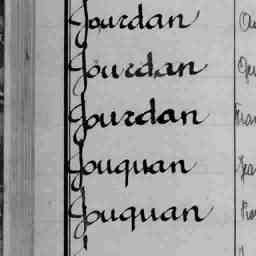 Jourdan
Jourdan
Jourdan
Jouquan
Jouquan